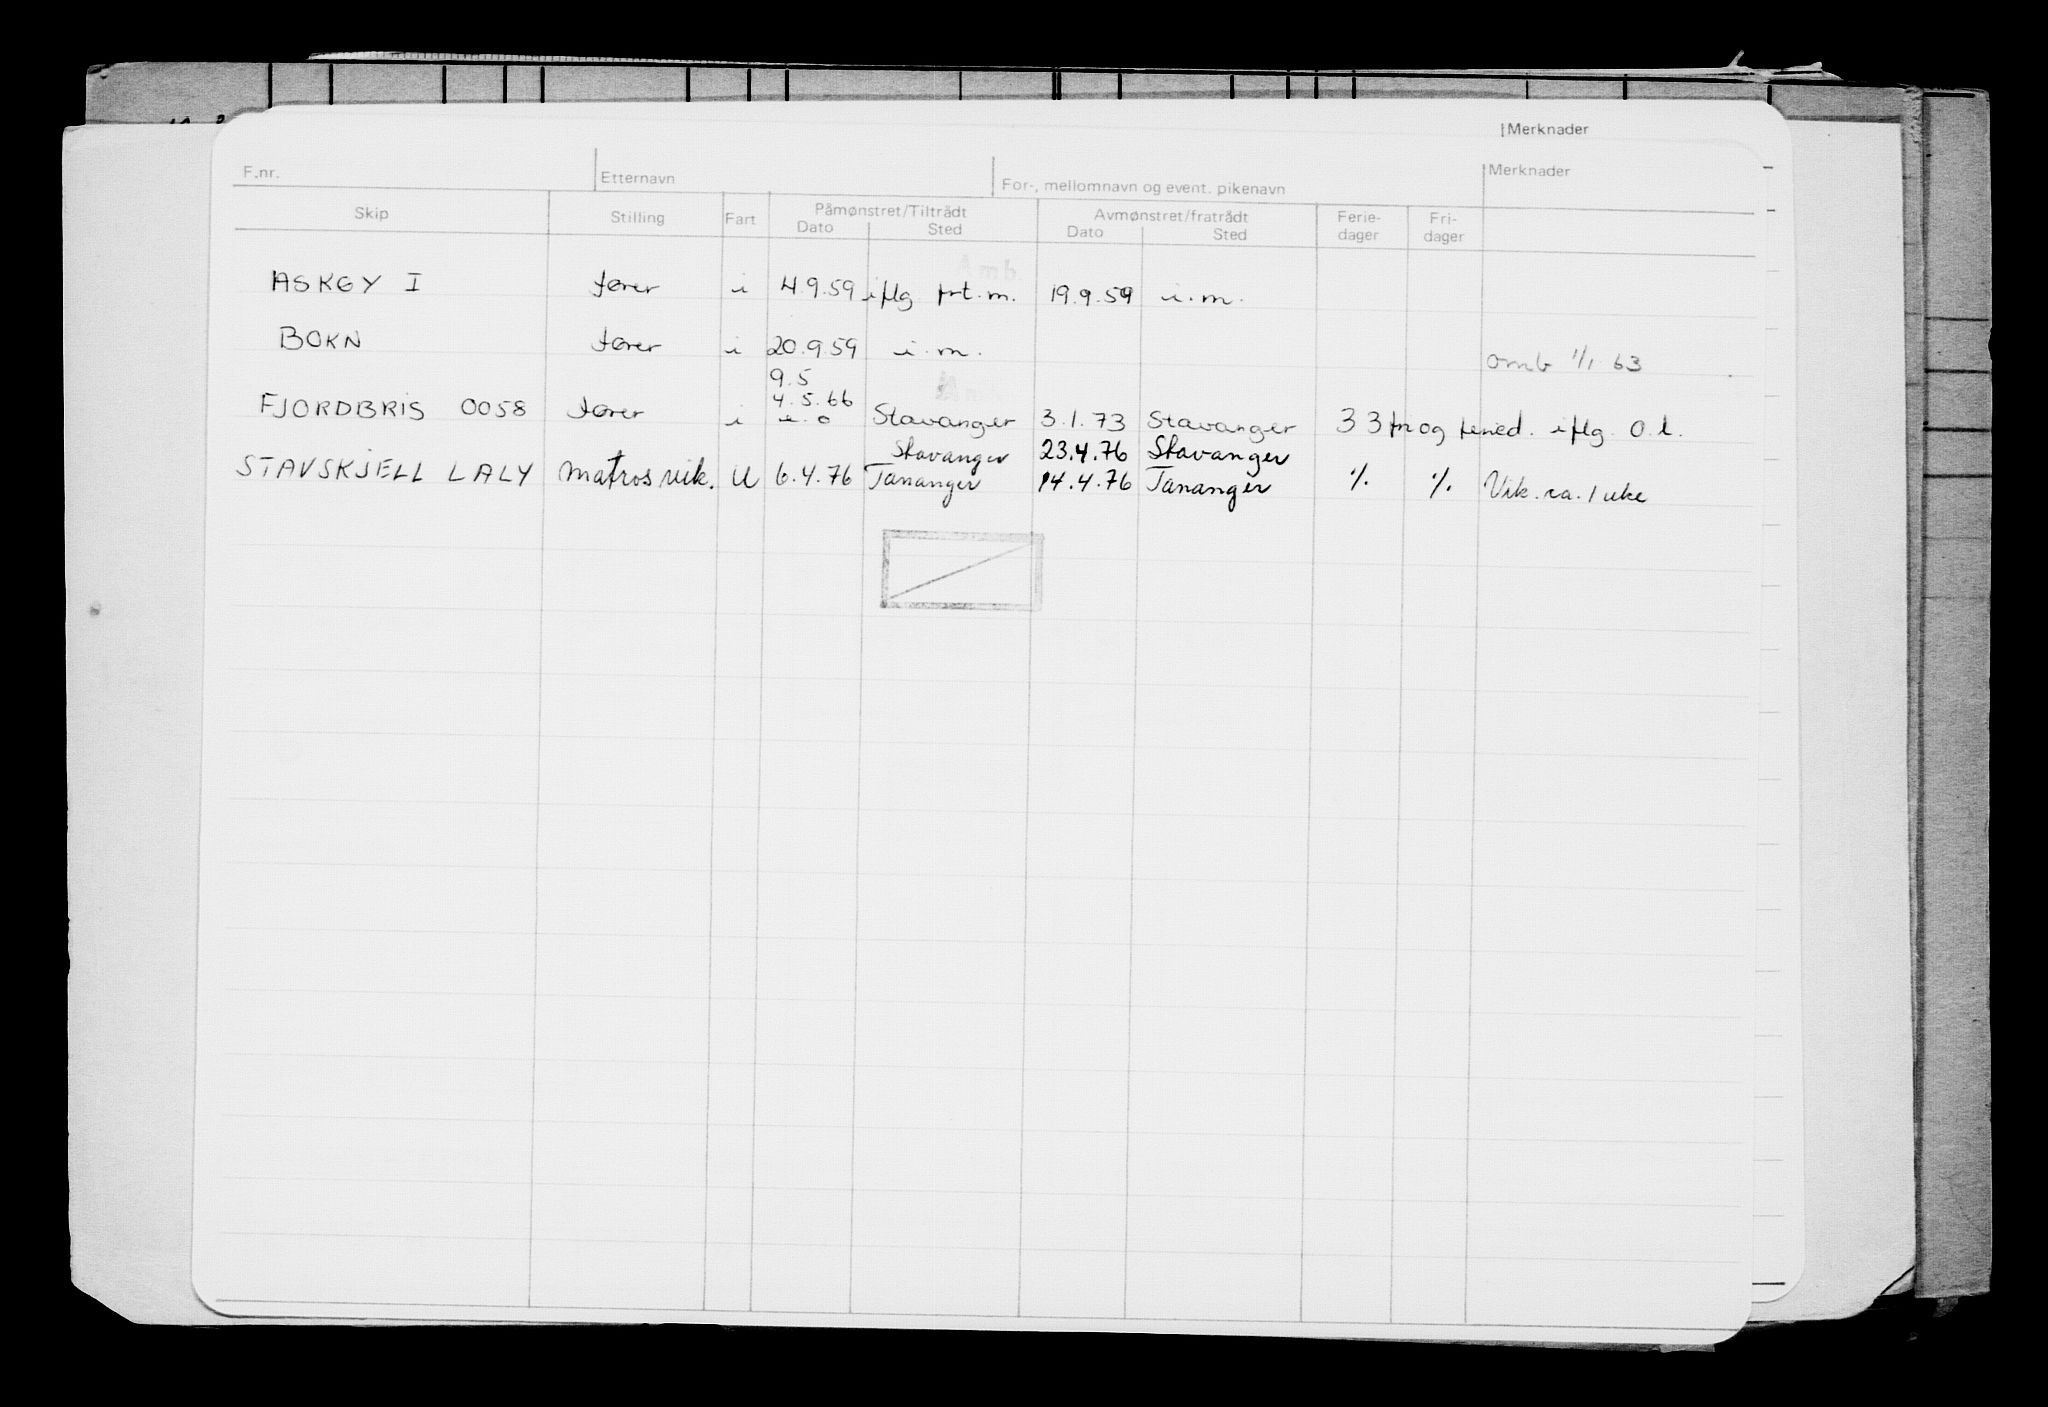 Merknader
F.nr. Etternavn For-, mellomnavn og event. pikenavn Merknader
Skip Stilling Fart Påmønstret/Tiltrådt Avmønstret/fratrådt Ferie- Fri-
Dato Sted Dato Sted dager dager
Amb.
ASKØY I fører i 4.9.59 iflg prt.m. 19.9.59 i.m.
BOKN fører i 20.9.59 i.m. omb 1/1 63
9.5
FJORDBRIS 0058 fører i 4.5.66 Stavanger 3.1.73 Stavanger 33 fri og feried. iflg. O.l.
Stavanger 23.4.76 Stavanger
STAVSKJELL LALY Matros vik. U 6.4.76 Tananger 14.4.76 Tananger % % Vik. ca. 1 uke